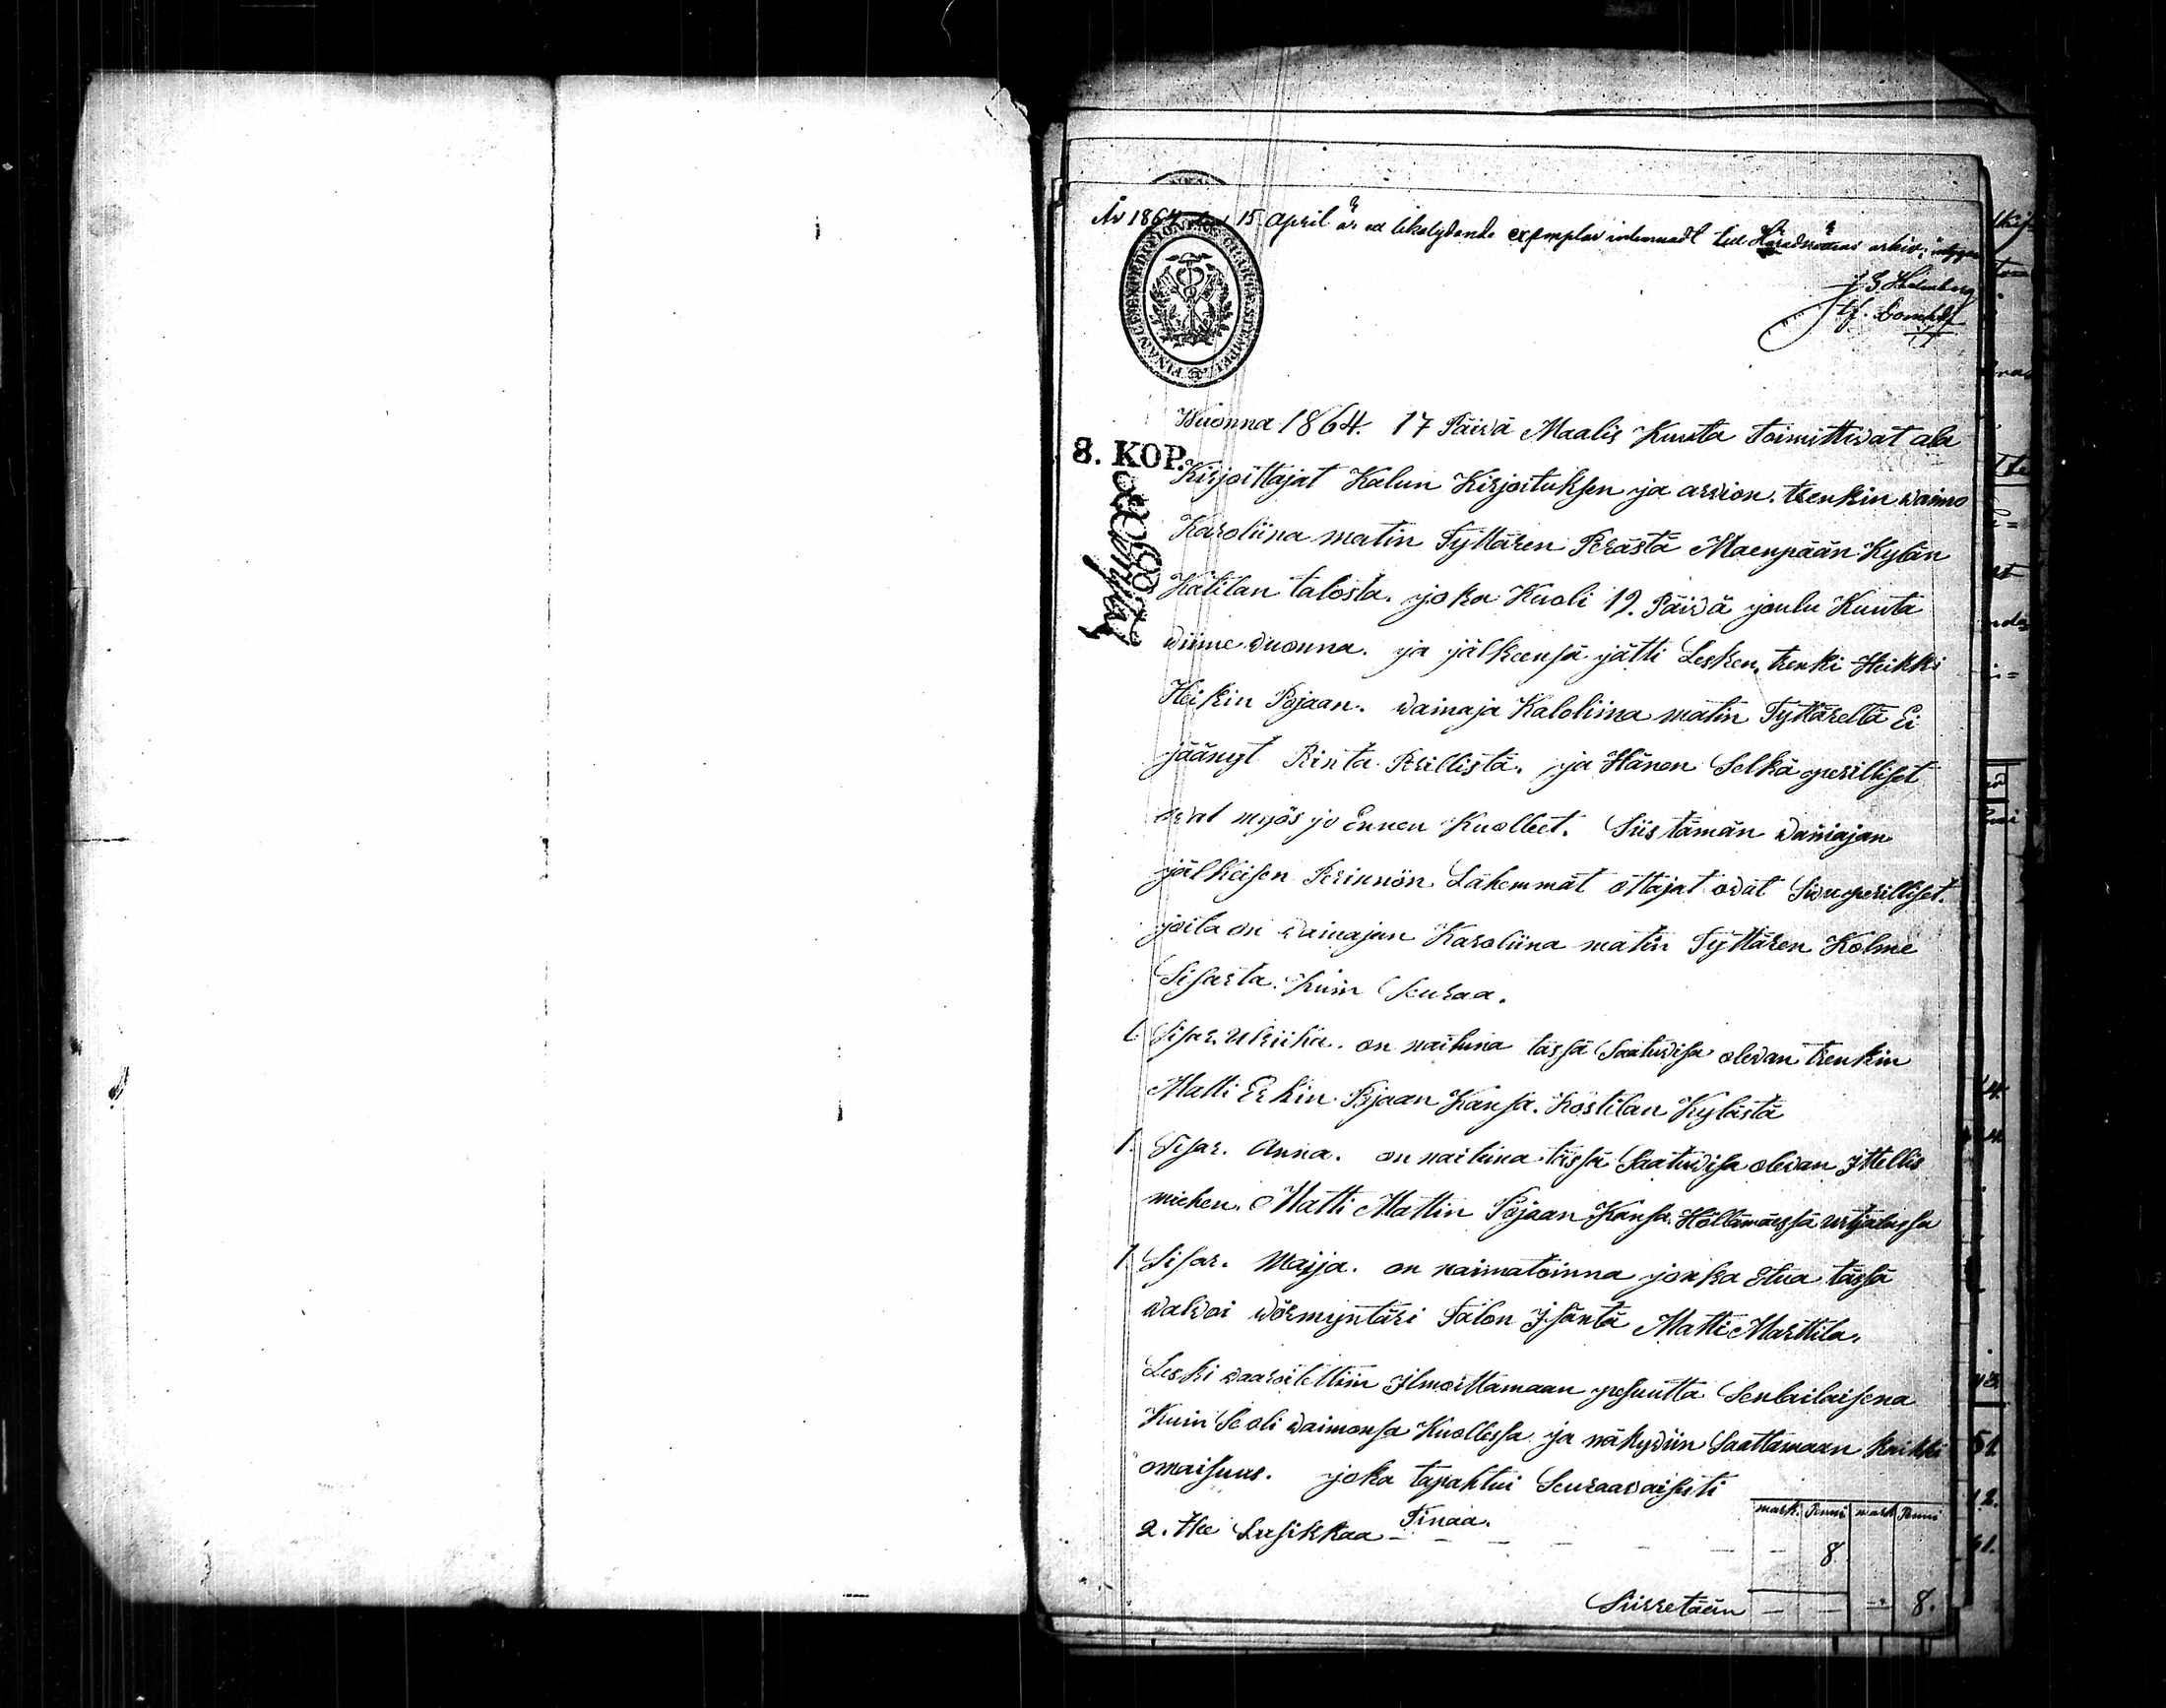 År 1864 den 15 April är ett likalydande exemplar inlemnadt till Häradsrättens arkiv;
tf. Domhfd
8. KOP.
Wuonna 1864. 17 Päivä Maalis Kuuta toimittivat ala
Kirjoittajat Kalun Kirjoituksen ja arvion. trenkin vaimo
Karoliina matin Tyttären Perästä Maenpään Kylän
Katilan talosta. joka Kuoli 19. Päivä joulu Kuuta
viime vuonna. ja jälkeensä jätti Lesken, trenki Heikki
Heikin Pojaan. vainaja Kaloliina matin Tyttäreltä Ei
jäänyt Rinta Perillistä. ja Hänen Selkä perilliset
ovat myös jo Ennen Kuolleet. Siis tämän vainajan
jälkeisen Perinnön Lähemmät ottajat ovat Sivuperilliset.
joita on vainajan Karoliina matin Tyttären Kolme
Sisarta. kuin Seuraa.
1. Sisar. Ulriika. on naituna tässä Saatuvisa olevan trenkin
Matti Erkin Pojaan Kansa. Kostilan Kylästä
1. Sisar. Anna. on naituna tässä Saatuvisa olevan Ittellis
miehen. Matti Mattin Pojaan Kansa. Höllämäessä urtjalassa
1 Sisar. Maija. on naimatoinna jonka Etua tässä
valvoi vörmyntäri Talon Isäntä Matti Marttila.
Leski vaaroitettiin Ilmoittamaan pesuutta Senlailaisena
Kuin Se oli vaimonsa Kuollessa ja näkyviin Saattamaan kaikki
omaisuus. joka tapahtui Seuraavaisesti
mark. Penni mark Penni
Tinaa.
2. Hee Lusikkaa - - - - - - - 8
Siirretään - - - 8.